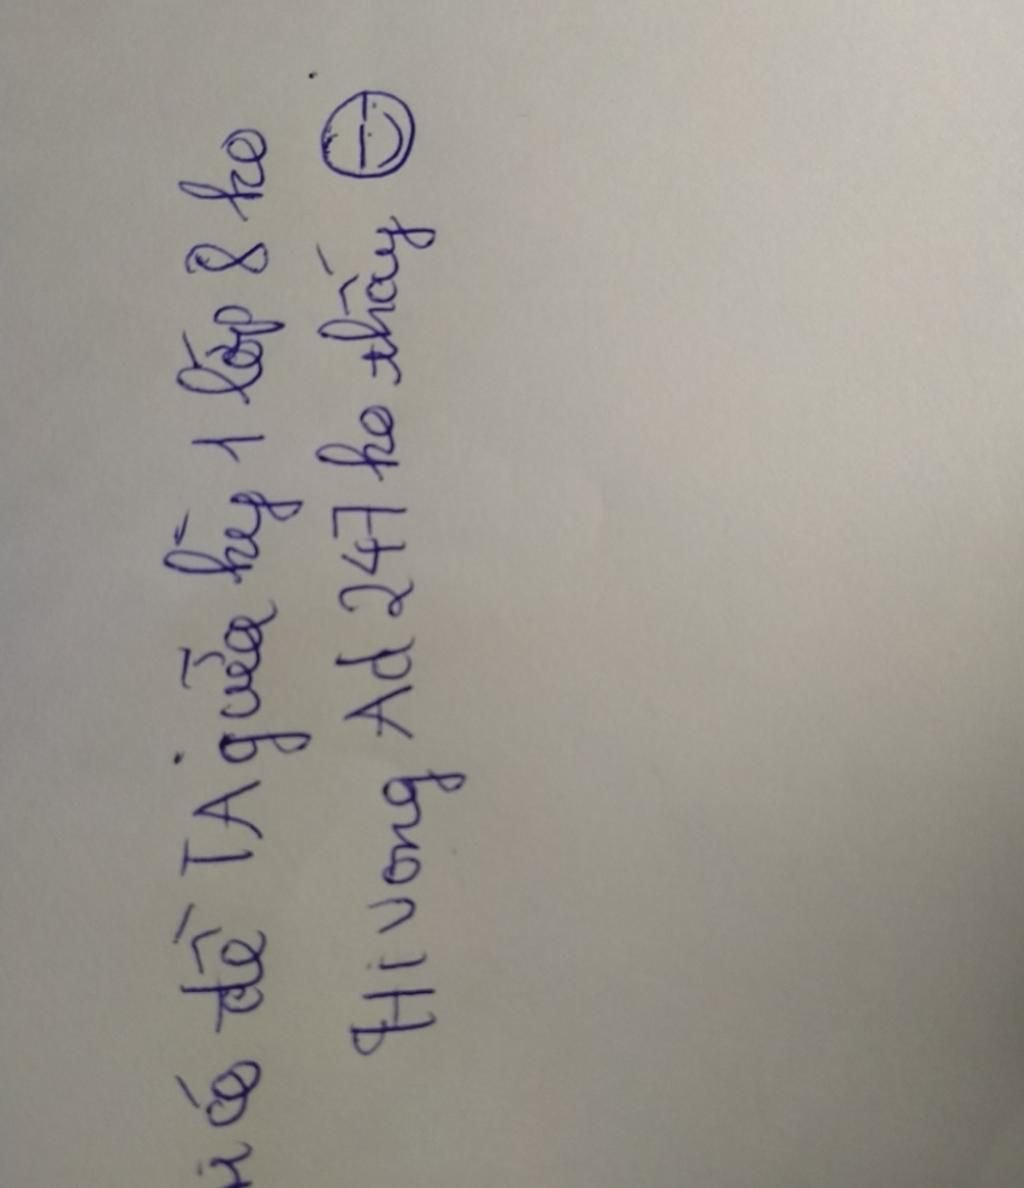 có đề TA giữa kỳ 1 lớp 8 ko
Hi vong Ad 247 ko thấy